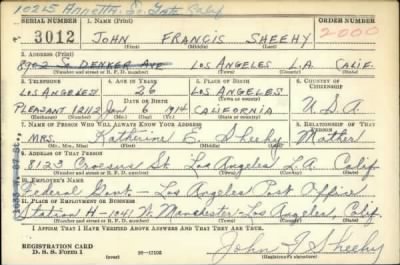 10215 Annetta S. Gate Calif
SERIAL NUMBER 1. NAME (Print) ORDER NUMBER
3012 JOHN FRANCIS SHEEHY 2000
(First) (Middle) (Last)
2. ADDRESS (Print)
8902 So DENKER AVE LOS ANGELES L.A. CALIF.
(Number and street or R. F. D. number) (Town) (County) (State)
3. TELEPHONE 4. AGE IN YEARS 5. PLACE OF BIRTH 6. COUNTRY OF CITIZENSHIP
LOS ANGELES 26 LOS ANGELES
DATE OF BIRTH (Town or county)
PLEASANT 12112 Jan 6 1914 CALIFORNIA U.S.A
(Exchange) (Number) (Mo.) (Day) (Yr.) (State or country)
7. NAME OF PERSON WHO WILL ALWAYS KNOW YOUR ADDRESS 8. RELATIONSHIP OF THAT PERSON
MRS. Katherine E. Sheehy Mother
(Mr., Mrs., Miss) (First) (Middle) (Last)
9. ADDRESS OF THAT PERSON
8123 St. Los Angeles L.A. Calif.
(Number and street or R. F. D. number) (Town) (County) (State)
10. EMPLOYER'S NAME
Federal Govt. — Los Angeles Post Office
11. PLACE OF EMPLOYMENT OR BUSINESS
Station H-104 W. Manchester - Los Angeles, Calif.
(Number and street or R. F. D. number) (Town) (County) (State)
I AFFIRM THAT I HAVE VERIFIED ABOVE ANSWERS AND THAT THEY ARE TRUE.
REGISTRATION CARD
D. S. S. Form 1 (over) 16—17105 John F Sheehy
(Registrant's signature)